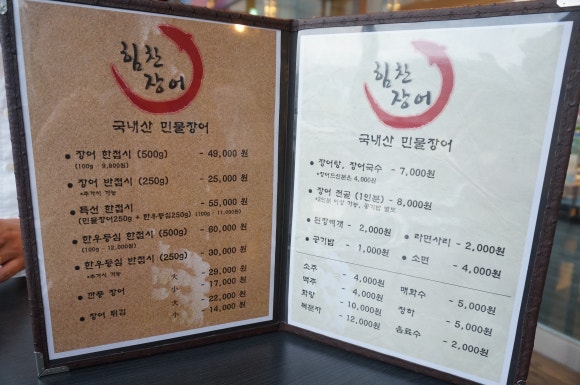 힘찬
장어
국내산 민물장어
• 장어 한접시 (500g) - 49,000 원
(100g - 9,800원)
• 장어 반접시 (250g) - 25,000 원
*추가시 가능
• 특선 한접시 - 55,000 원
(민물장어250g + 한우등심250g) (100g - 11,000원)
• 한우등심 한접시 (500g) - 60,000 원
(100g - 12,000원)
• 한우등심 반접시 (250g) - 30,000 원
*추가시 가능
• 깐풍 장어 大 - 28,000 원
小 - 17,000 원
• 장어 튀김 大 - 22,000 원
小 - 14,000 원
힘찬
장어
국내산 민물장어
• 장어탕, 장어국수 - 7,000원
*장어드신분은 4,000원
• 장어 전골 (1인분) - 8,000원
*2인분 이상 가능, 공기밥 별도
• 된장찌개 - 2,000원
• 라면사리 - 2,000원
• 공기밥 - 1,000원
• 소면 - 4,000원
소주 - 4,000원
맥주 - 4,000원
화랑 - 10,000원
복분자 - 12,000원
매화수 - 5,000원
청하 - 5,000원
음료수 - 2,000원